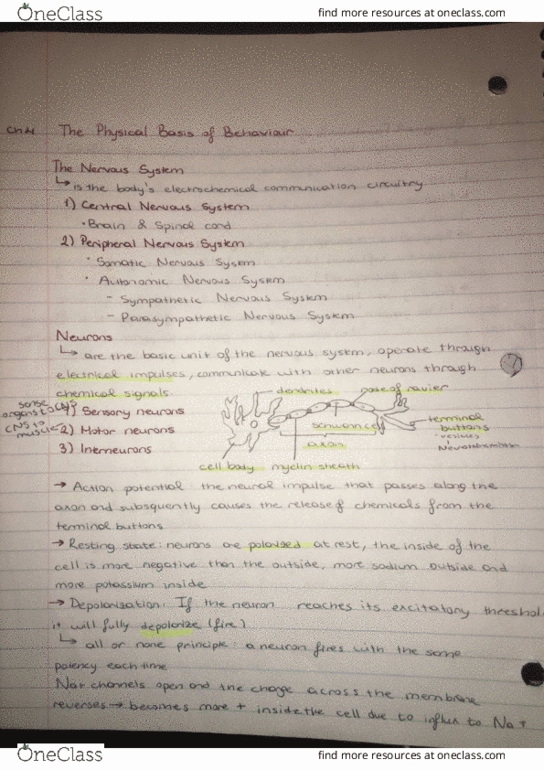 OneClass
find more resources at oneclass.com
The Physical Basis of Behaviour
The Nervous System
↳ is the body's electrochemical communication circuitry
1) Central Nervous System
• Brain & Spinal cord
2) Peripheral Nervous System
• Somatic Nervous System
• Autonomic Nervous System
- Sympathetic Nervous System
- Parasympathetic Nervous System
Neurons
↳ are the basic unit of the nervous system, operate through
electrical impulses, communicate with other neurons through
chemical signals.
dendrites
node of ranvier
sense
organs to CNS
1) Sensory neurons
CNS to
muscles
2) Motor neurons
3) Interneurons
schwann cell
axon
terminal
buttons
cell body
myelin sheath
→ Action potential: the neural impulse that passes along the
axon and subsquently causes the release of chemicals from the
terminal buttons
→ Resting state: neurons are polarized at rest, the inside of the
cell is more negative than the outside, more sodium outside and
more potassium inside
→ Depolarisation: If the neuron reaches its excitatory threshol
it will fully depolarize (fire)
↳ all or none principle: a neuron fires with the same
potency each time
Na+ channels open and the charge across the membrane
reverses → becomes more + inside the cell due to influx to Na+
OneClass
find more resources at oneclass.com